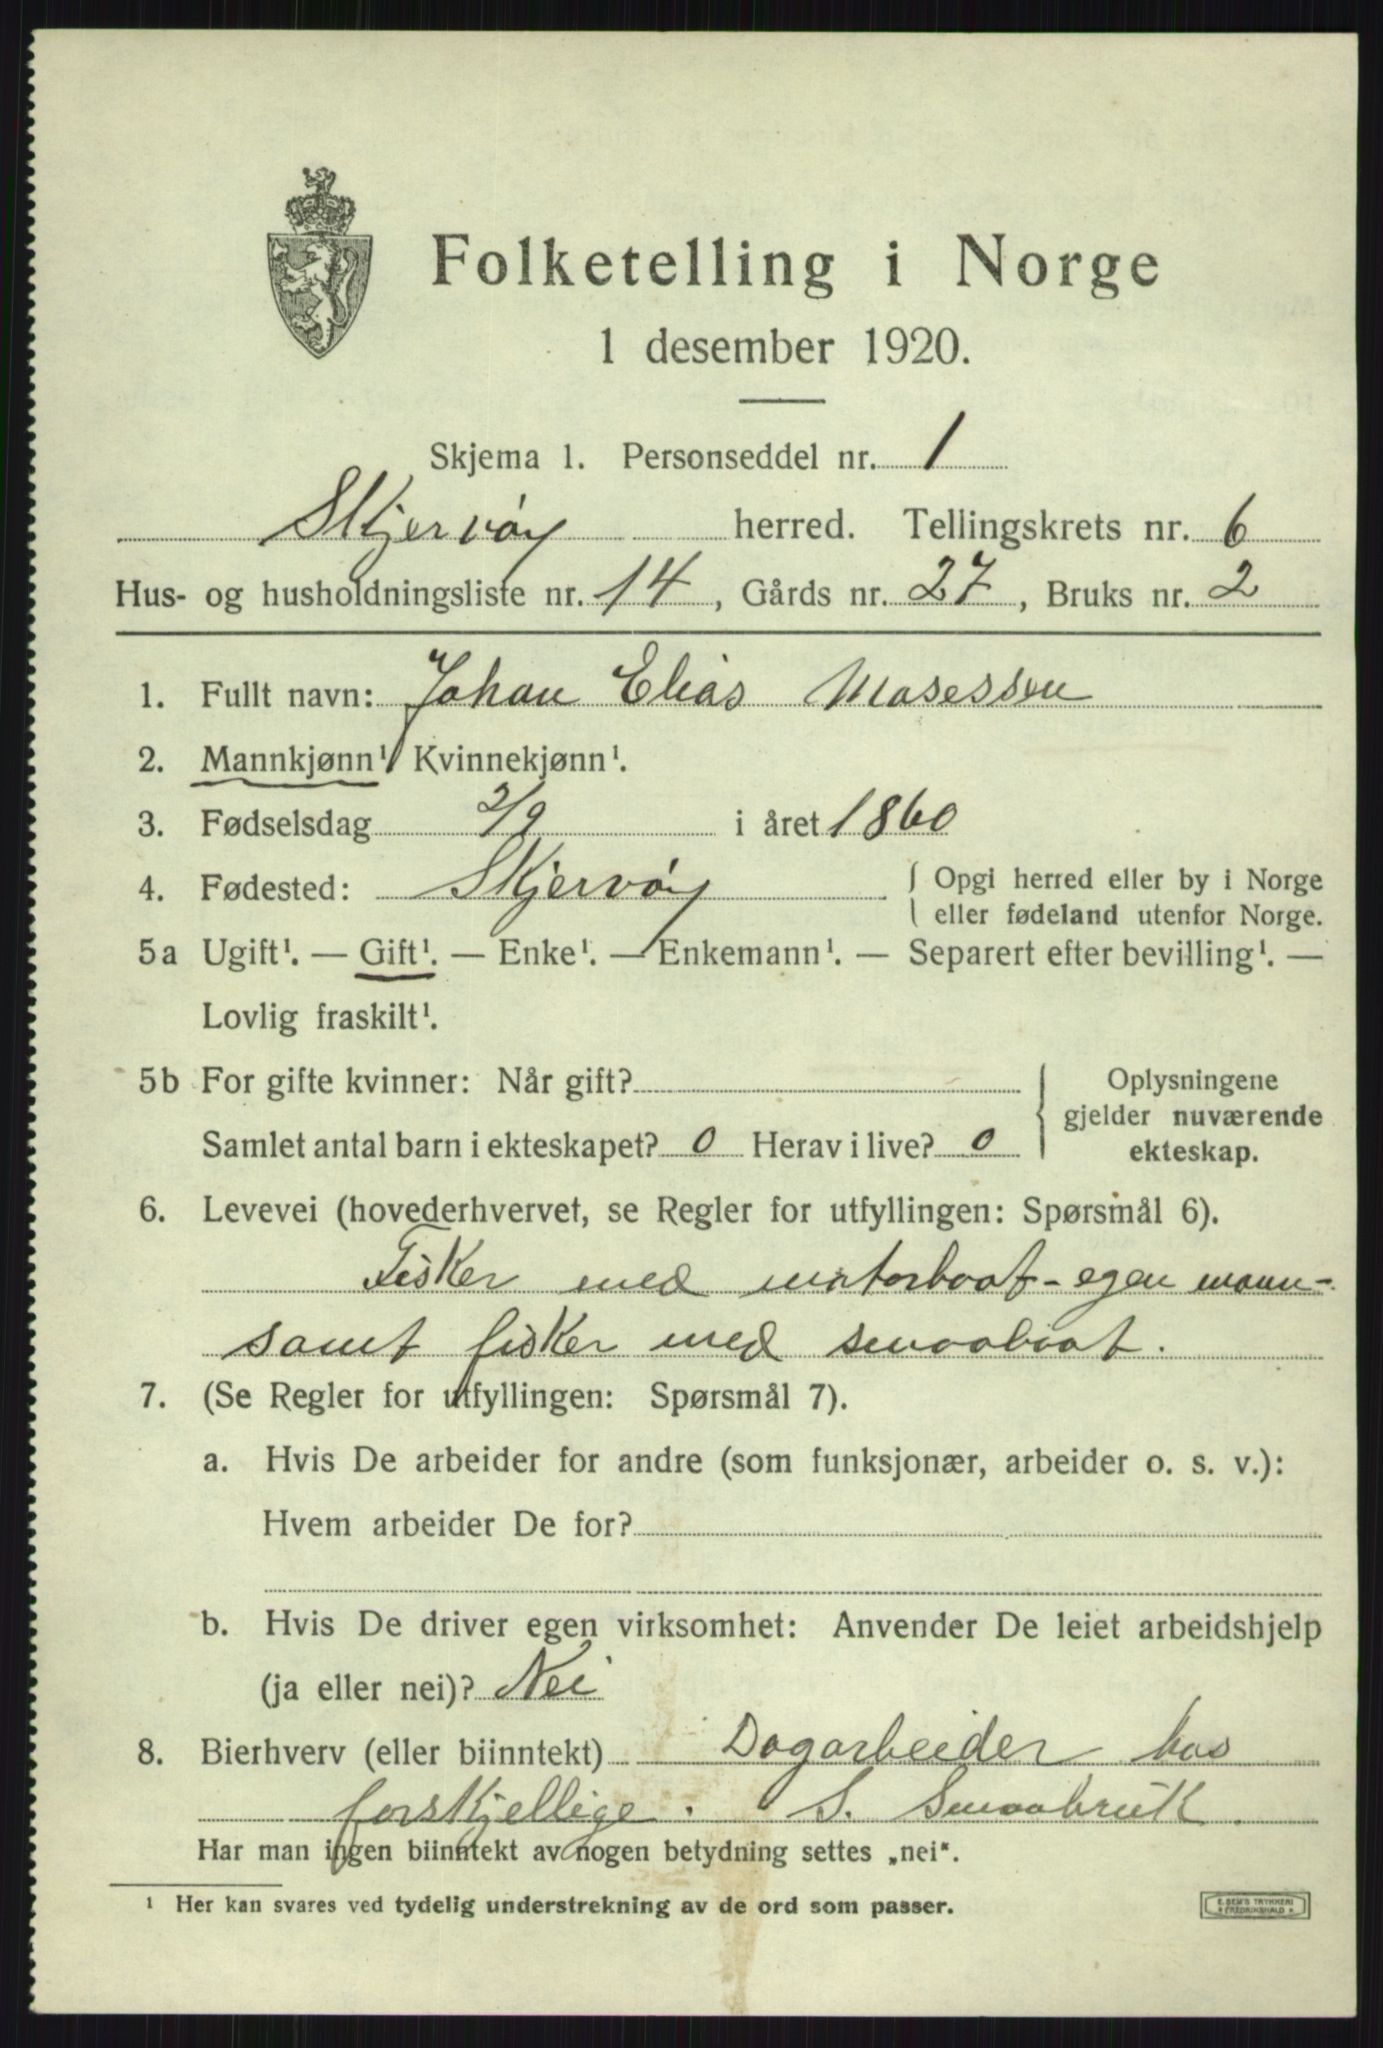 Folketelling i Norge
1 desember 1920.
Skjema 1. Personseddel nr. 1
Skjervøy herred. Tellingskrets nr. 6
Hus- og husholdningsliste nr. 14, Gårds nr. 27, Bruks nr. 2
1. Fullt navn: Johan Elias Mosessen
2. Mannkjønn¹, Kvinnekjønn¹.
3. Fødselsdag 2/9 i året 1860
4. Fødested: Skjervøy { Opgi herred eller by i Norge
eller fødeland utenfor Norge.
5a Ugift¹. — Gift¹. — Enke¹. — Enkemann¹. — Separert efter bevilling¹. —
Lovlig fraskilt¹.
5b For gifte kvinner: Når gift?
Samlet antal barn i ekteskapet? 0 Herav i live? 0
Oplysningene
gjelder nuværende
ekteskap.
6. Levevei (hovederhvervet, se Regler for utfyllingen: Spørsmål 6).
Fisker med motorbaat - egen mann -
samt fisker med smaabaat.
7. (Se Regler for utfyllingen: Spørsmål 7).
a. Hvis De arbeider for andre (som funksjonær, arbeider o. s. v.):
Hvem arbeider De for?
b. Hvis De driver egen virksomhet: Anvender De leiet arbeidshjelp
(ja eller nei)? Nei
8. Bierhverv (eller biinntekt) Dagarbeider hos
forskjellige. S. Smaabruk
Har man ingen biinntekt av nogen betydning settes „nei“.
¹ Her kan svares ved tydelig understrekning av de ord som passer.
E. SEM'S TRYKKERI
* FREDRIKSHALD *